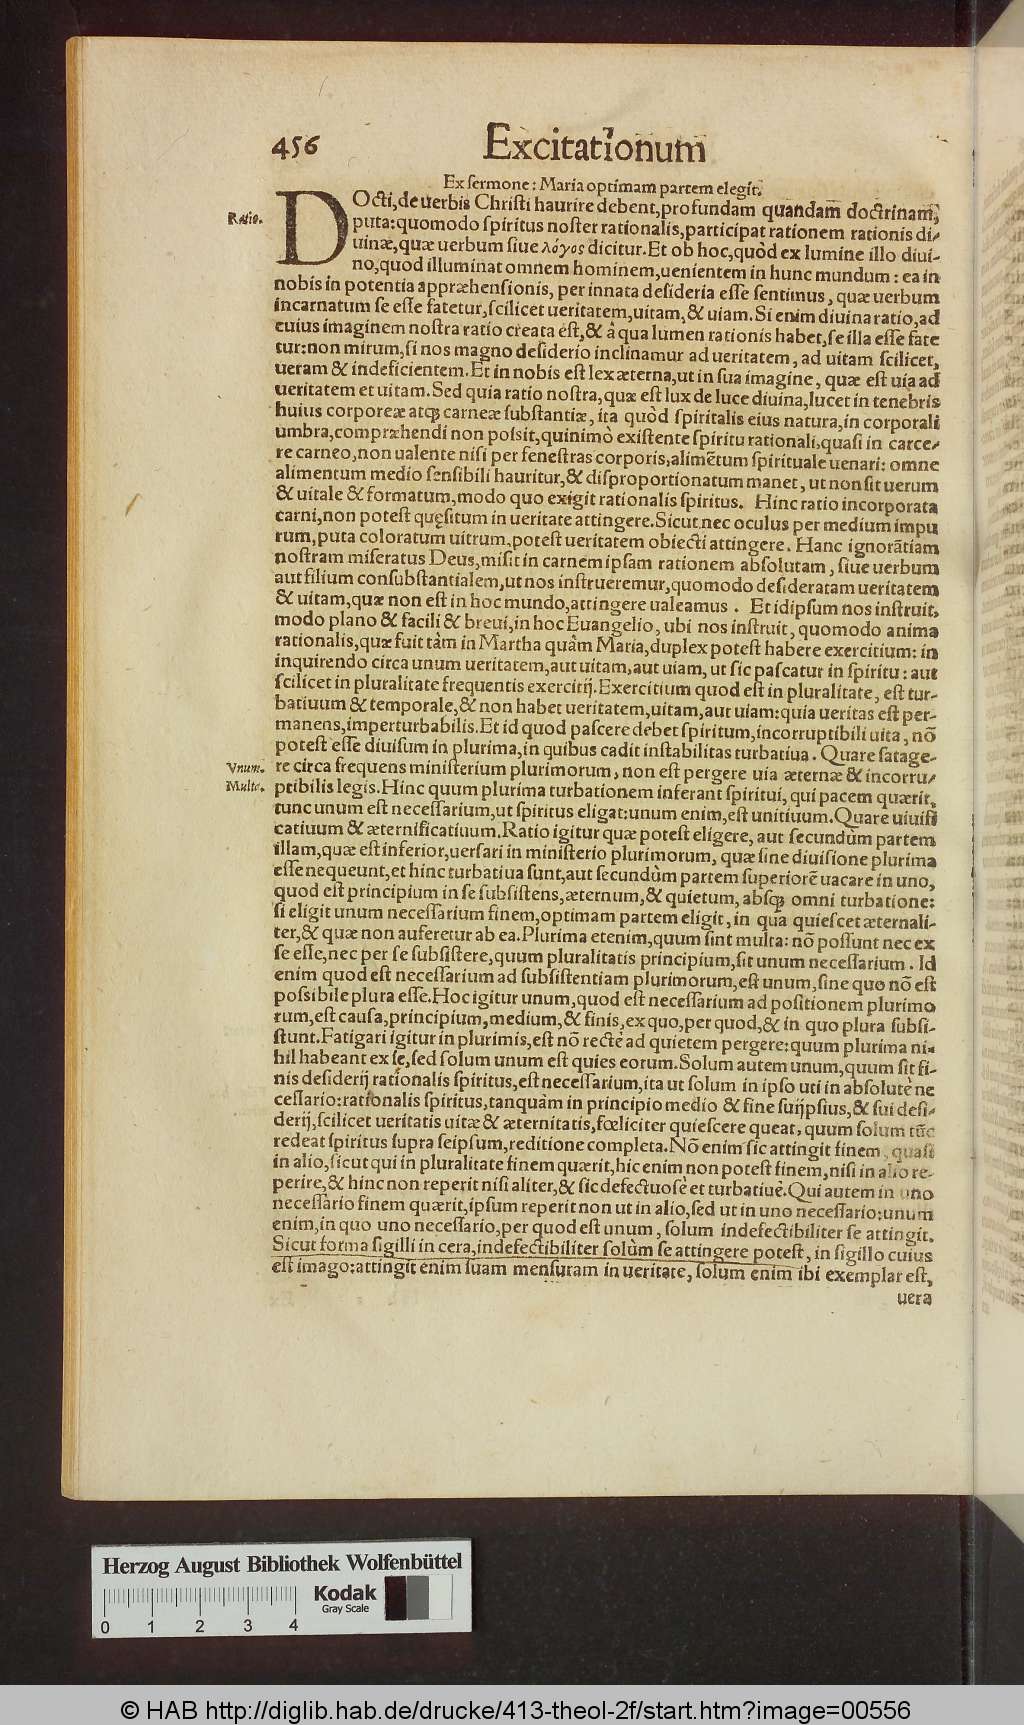 456 Excitationum
Ex sermone: Maria optimam partem elegit.
Ratio.
DOcti, de uerbis Christi haurire debent, profundam quandam doctrinam,
puta: quomodo spiritus noster rationalis, participat rationem rationis di-
uinæ, quæ uerbum siue λόγος dicitur. Et ob hoc, quòd ex lumine illo diui-
no, quod illuminat omnem hominem, uenientem in hunc mundum: ea in
nobis in potentia appræhensionis, per innata desideria esse sentimus, quæ uerbum
incarnatum se esse fatetur, scilicet ueritatem, uitam, & uiam. Si enim diuina ratio, ad
cuius imaginem nostra ratio creata est, & à qua lumen rationis habet, se illa esse fate
tur: non mirum, si nos magno desiderio inclinamur ad ueritatem, ad uitam scilicet,
ueram & indeficientem. Et in nobis est lex æterna, ut in sua imagine, quæ est uia ad
ueritatem et uitam. Sed quia ratio nostra, quæ est lux de luce diuina, lucet in tenebris
huius corporeæ atq; carneæ substantiæ, ita quòd spiritalis eius natura, in corporali
umbra, compræhendi non possit, quinimò existente spiritu rationali, quasi in carce-
re carneo, non ualente nisi per fenestras corporis, alimẽtum spirituale uenari: omne
alimentum medio sensibili hauritur, & disproportionatum manet, ut non sit uerum
& uitale & formatum, modo quo exigit rationalis spiritus. Hinc ratio incorporata
carni, non potest quęsitum in ueritate attingere. Sicut nec oculus per medium impu
rum, puta coloratum uitrum, potest ueritatem obiecti attingere. Hanc ignorãtiam
nostram miseratus Deus, misit in carnem ipsam rationem absolutam, siue uerbum
aut filium consubstantialem, ut nos instrueremur, quomodo desideratam ueritatem
& uitam, quæ non est in hoc mundo, attingere ualeamus. Et idipsum nos instruit,
modo plano & facili & breui, in hoc Euangelio, ubi nos instruit, quomodo anima
rationalis, quæ fuit tàm in Martha quàm Maria, duplex potest habere exercitium: in
inquirendo circa unum ueritatem, aut uitam, aut uiam, ut sic pascatur in spiritu: aut
scilicet in pluralitate frequentis exercitij. Exercitium quod est in pluralitate, est tur-
batiuum & temporale, & non habet ueritatem, uitam, aut uiam: quia ueritas est per-
manens, imperturbabilis. Et id quod pascere debet spiritum, incorruptibili uita, nõ
potest esse diuisum in plurima, in quibus cadit instabilitas turbatiua. Quare satage-
Vnum.
Multa.
re circa frequens ministerium plurimorum, non est pergere uia æternæ & incorru-
ptibilis legis. Hinc quum plurima turbationem inferant spiritui, qui pacem quærit,
tunc unum est necessarium, ut spiritus eligat: unum enim, est unitiuum. Quare uiuifi
catiuum & æternificatiuum. Ratio igitur quæ potest eligere, aut secundùm partem
illam, quæ est inferior, uersari in ministerio plurimorum, quæ sine diuisione plurima
esse nequeunt, et hinc turbatiua sunt, aut secundùm partem superiorẽ uacare in uno,
quod est principium in se subsistens, æternum, & quietum, absq; omni turbatione:
si eligit unum necessarium finem, optimam partem eligit, in qua quiescet æternali-
ter, & quæ non auferetur ab ea. Plurima etenim, quum sint multa: nõ possunt nec ex
se esse, nec per se subsistere, quum pluralitatis principium, sit unum necessarium. Id
enim quod est necessarium ad subsistentiam plurimorum, est unum, sine quo nõ est
possibile plura esse. Hoc igitur unum, quod est necessarium ad positionem plurimo
rum, est causa, principium, medium, & finis, ex quo, per quod, & in quo plura subsi-
stunt. Fatigari igitur in plurimis, est nõ rectè ad quietem pergere: quum plurima ni-
hil habeant ex se, sed solum unum est quies eorum. Solum autem unum, quum sit fi-
nis desiderij rationalis spiritus, est necessarium, ita ut solum in ipso uti in absolutè ne
cessario: rationalis spiritus, tanquàm in principio medio & fine suijpsius, & sui desi-
derij, scilicet ueritatis uitæ & æternitatis, fœliciter quiescere queat, quum solum tũc
redeat spiritus supra seipsum, reditione completa. Nõ enim sic attingit finem, quasi
in alio, sicut qui in pluralitate finem quærit, hic enim non potest finem, nisi in alio re-
perire, & hinc non reperit nisi aliter, & sic defectuosè et turbatiuè. Qui autem in uno
necessario finem quærit, ipsum reperit non ut in alio, sed ut in uno necessario: unum
enim, in quo uno necessario, per quod est unum, solum indefectibiliter se attingit.
Sicut forma sigilli in cera, indefectibiliter solùm se attingere potest, in sigillo cuius
est imago: attingit enim suam mensuram in ueritate, solum enim ibi exemplar est,
uera
Herzog August Bibliothek Wolfenbüttel
Kodak
Gray Scale
0 1 2 3 4
© HAB http://diglib.hab.de/drucke/413-theol-2f/start.htm?image=00556